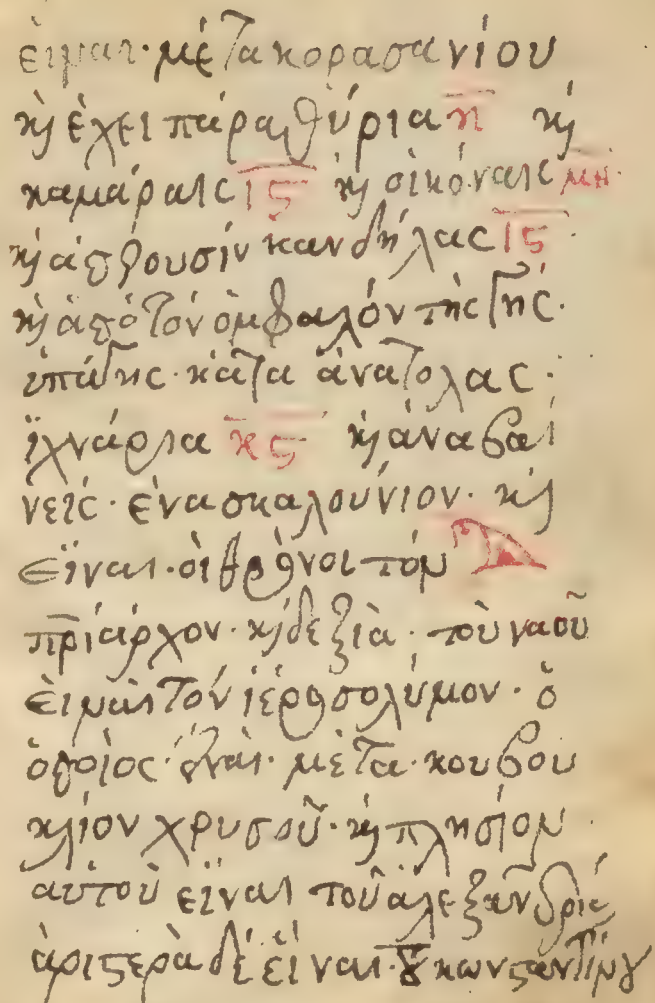 εἰμαι· μὲ τα κορασανίου
κ̀ ἔχει παραθύρια η̅ κ̀
καμάραις ι̅ς̅ κ̀ οἰκόναις μ̅η̅·
κ̀ ἀπτουσιν κανδήλας ι̅ς̅·
κ̀ ἀπὸ τὸν ὀμφαλόν τῆς γῆς·
ὑπάγης· κατα ἀνατολας·
ἰχνάρια κ̅ς̅ κ̀ ἀναβαί
νεις· ἕνα σκαλούνιον· κ̀
εἶναι· οἱ θρόνοι τόν Δ
πριάρχον· κ̀ δεξιὰ· τοῦ ναοῦ
εἰμαι τόν ἱεροσολύμον· ὁ
ὁποίος· εἶναι· μὲ τα· κουβου
κλίον χρυσοῦ· κ̀ πλησίον·
αυτοῦ εἶναι τοῦ ἀλεξανδρίας
ἀριστερὰ δέ εἶναι· τοῦ κωνσταντίνου